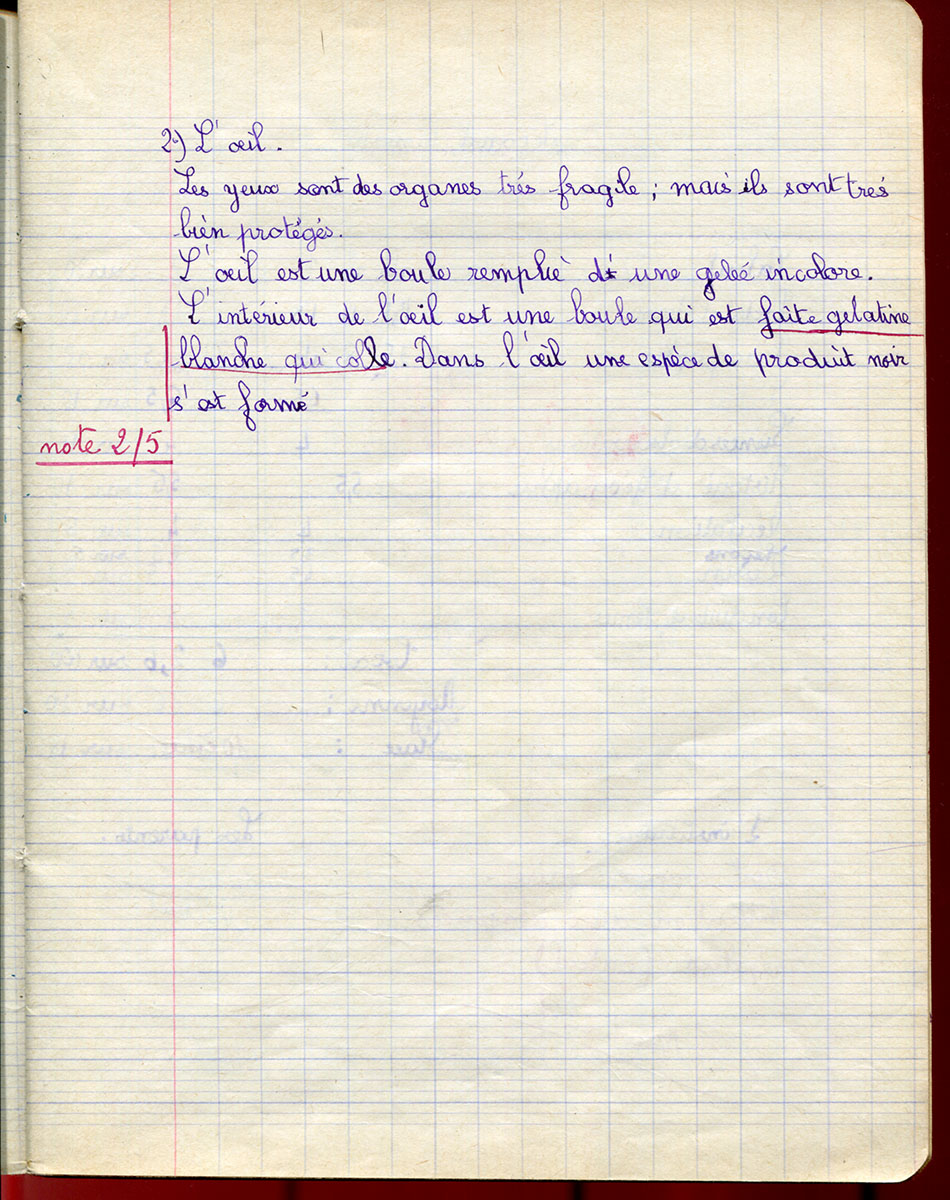 2) L'œil.
Les yeux sont des organes trés fragile ; mais ils sont tres
bien protégés.
L'œil est une boule remplie d' une geleé incolore.
L'intérieur de l'œil est une boule qui est faite gelatine
blanche qui colle. Dans l'œil une espéce de produit noir
s'est formé
note 2/5